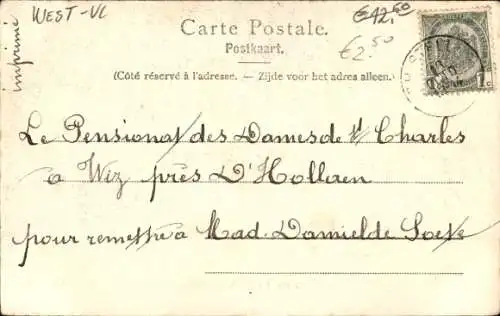 WEST-VL
imprimé
€12.50
€2.50
Carte Postale.
Postkaart.
(Côté réservé à l'adresse. — Zijde voor het adres alleen.)
1c
Le Pensionat des Dames de St Charles
a Wiz près D'Hollaen
pour remettre à Mad. Damielde Soete